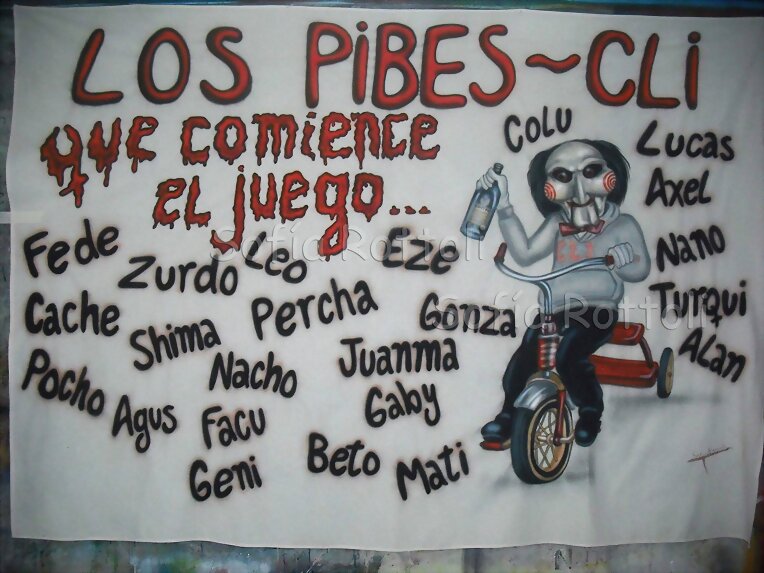 LOS PIBES~CLI
que comience
el juego...
Colu
Lucas
Axel
Nano
Turqui
Alan
Fede
Zurdo
Leo
Eze
Cache
Shima
Percha
Gonza
Pocho
Agus
Nacho
Juanma
Facu
Gaby
Geni
Beto
Mati
Sofía Rottoli
Sofía Rottoli